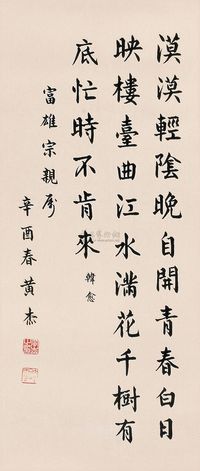 漠漠輕陰晚自開青春白日
映樓臺曲江水滿花千樹有
底忙時不肯來
韓愈
富雄宗親屬
辛酉春黃杰